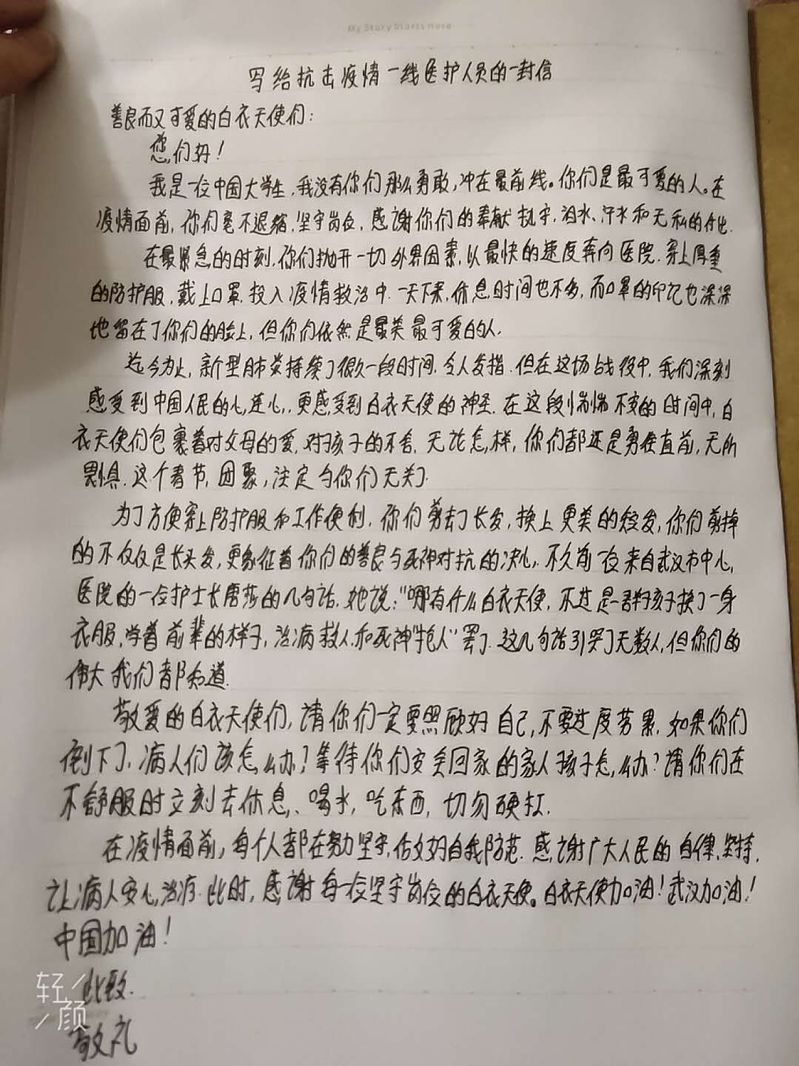 My Story Starts Here
写给抗击疫情一线医护人员的一封信
善良而又可爱的白衣天使们:
您们好!
我是一位中国大学生,我没有你们那么勇敢,冲在最前线。你们是最可爱的人。在
疫情面前,你们毫不退缩,坚守岗位,感谢你们的奉献 执守,泪水、汗水和无私的付出.
在最紧急的时刻,你们抛开一切外界因素,以最快的速度奔向医院.穿上厚重
的防护服,戴上口罩,投入疫情救治中.一天下来,休息时间也不多,而口罩的印记也深深
地留在了你们的脸上,但你们依然是最美最可爱的人.
迄今为止,新型肺炎持续了很久一段时间,令人发指.但在这场战役中,我们深刻
感受到中国人民的心连心,更感受到白衣天使的神圣.在这段惴惴不安的时间中,白
衣天使们包裹着对父母的爱,对孩子的不舍,无论怎样,你们都还是勇往直前,无所
畏惧.这个春节,团聚,注定与你们无关了.
为了方便穿上防护服和工作便利,你们剪去了长发,换上更美的短发,你们剪掉
的不仅仅是长头发,更象征着你们的善良与死神对抗的决心.不久前一位来自武汉市中心
医院的一位护士长唐莎的几句话,她说:“哪有什么白衣天使,不过是一群孩子换了一身
衣服,学着前辈的样子,治病救人和死神“抢人”罢了.这几句话引哭了无数人,但你们的
伟大我们都知道.
敬爱的白衣天使们,请你们一定要照顾好自己,不要过度劳累,如果你们
倒下了,病人们该怎么办?等待你们安全回家的家人孩子怎么办?请你们在
不舒服时立刻去休息、喝水,吃东西,切勿硬扛.
在疫情面前,每个人都在努力坚守,做好自我防范.感谢广大人民的自律,坚持,
让病人安心治疗.此时,感谢每一位坚守岗位的白衣天使。白衣天使加油!武汉加油!
中国加油!
此致.
敬礼
轻
颜